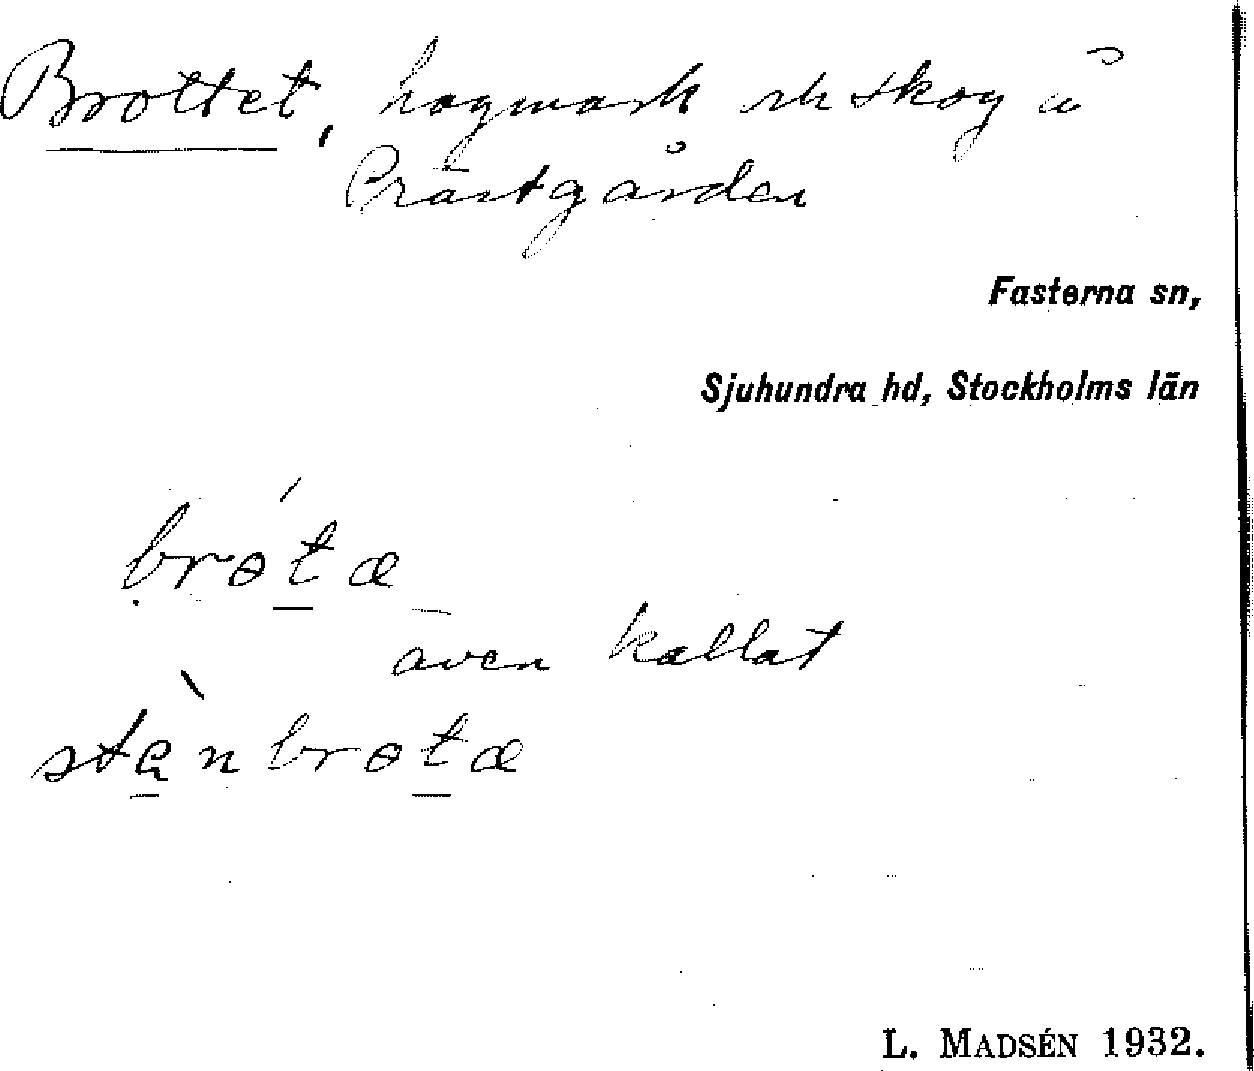 Brottet, hagmark och skog å
Prästgården
Fasterna sn,
Sjuhundra hd, Stockholms län
brɵ́tæ
även kallat
stè̱nbrɵtæ
L. MADSÉN 1932.